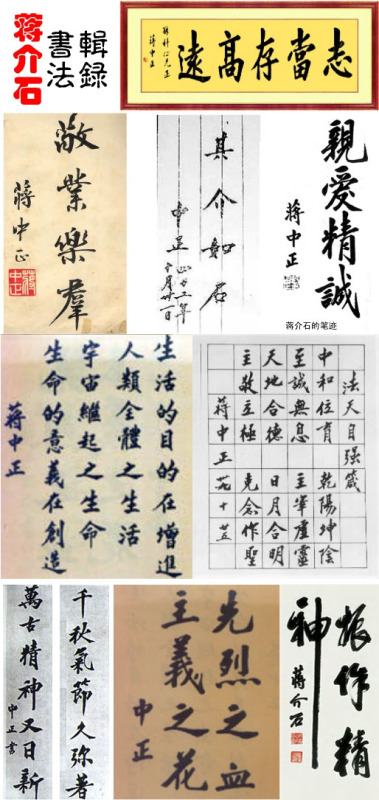 蒋介石
書法
輯録
志當存高遠
蔣中正
敬業樂羣
蔣中正
其介如石
中正
親愛精誠
蔣中正
蒋介石的笔迹
生活的目的在增進
人類全體之生活
宇宙繼起之生命
生命的意義在創造
蔣中正
法天自强箴
中和位育 乾陽坤陰
至誠無息 主宰虛靈
天地合德 日月合明
主敬立極 克念作聖
蔣中正
千秋氣節久弥著
萬古精神又日新
中正書
先烈之血
主義之花
中正
振作精
神
蔣介石